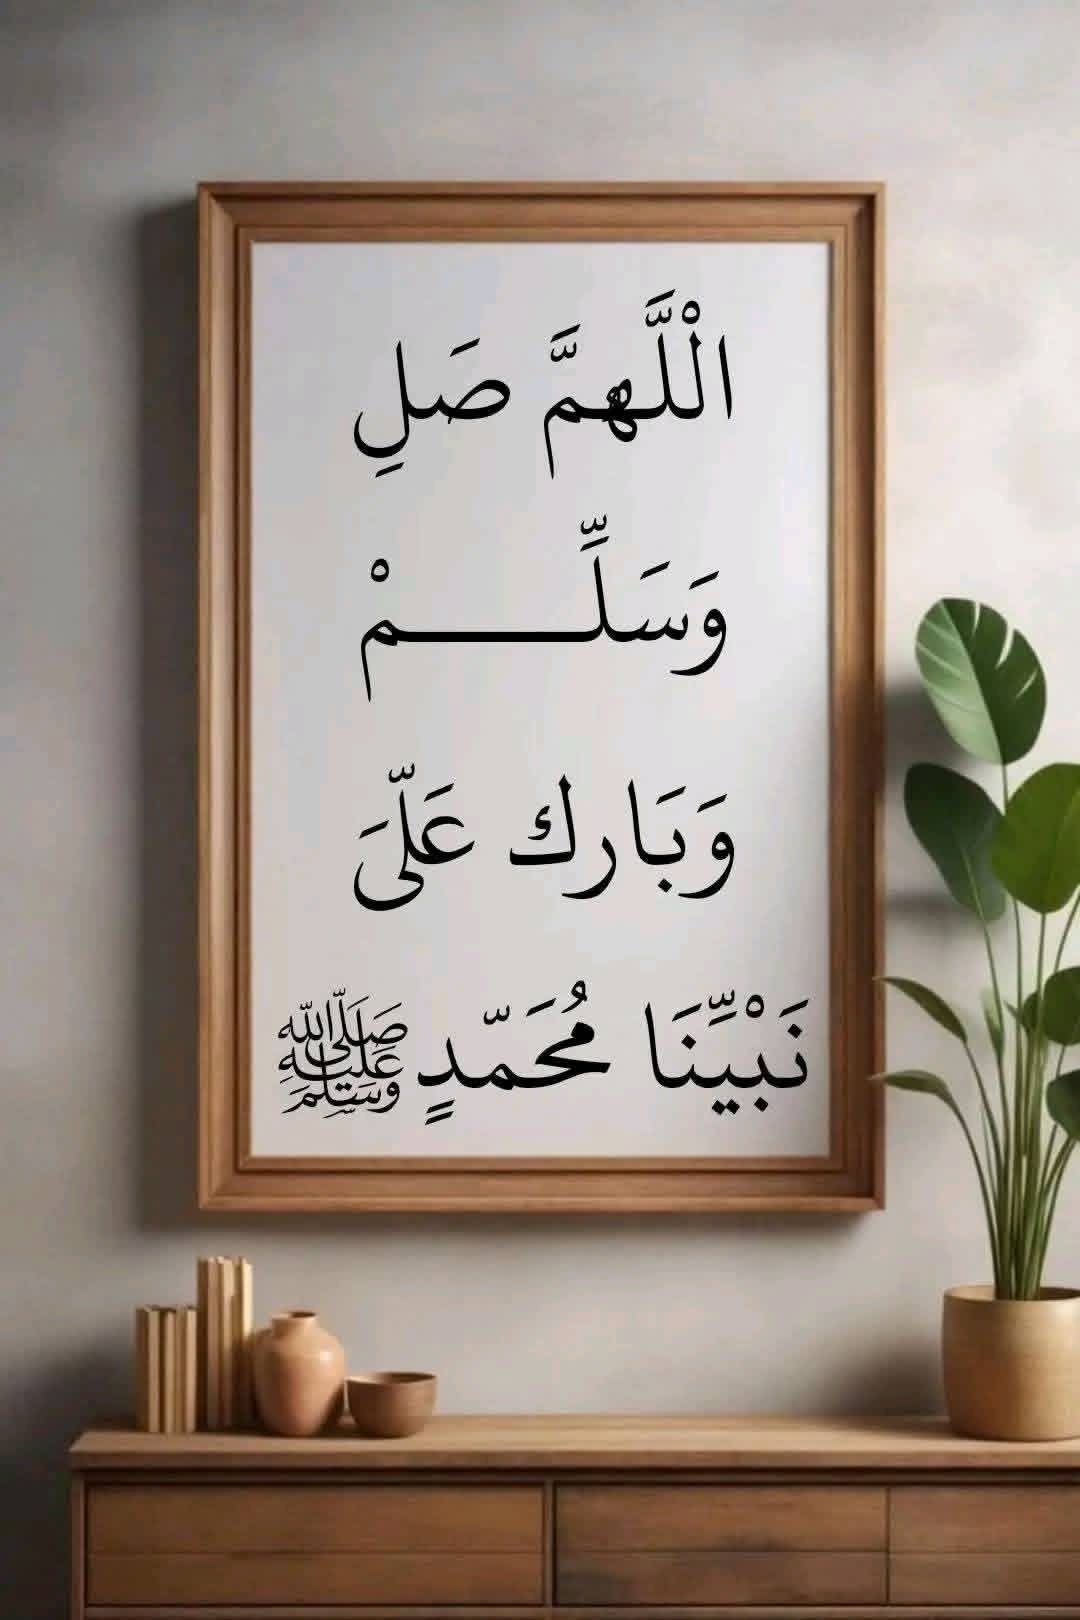 الْلَّهمَّ صَلِ
وَسَلِّمْ
وَبَارك عَلىَّ
نَبْيِّنَا مُحَمّدٍ ﷺ